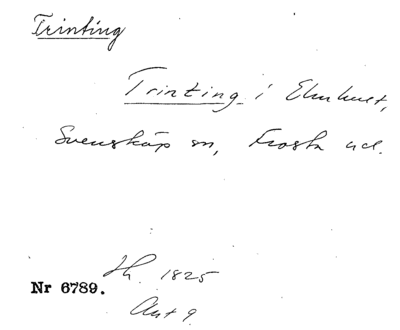 Trinting
Trinting i Elmhult,
Svensköp sn, Frosta hd.
Lh. 1825
Nr 6789.
Akt 9